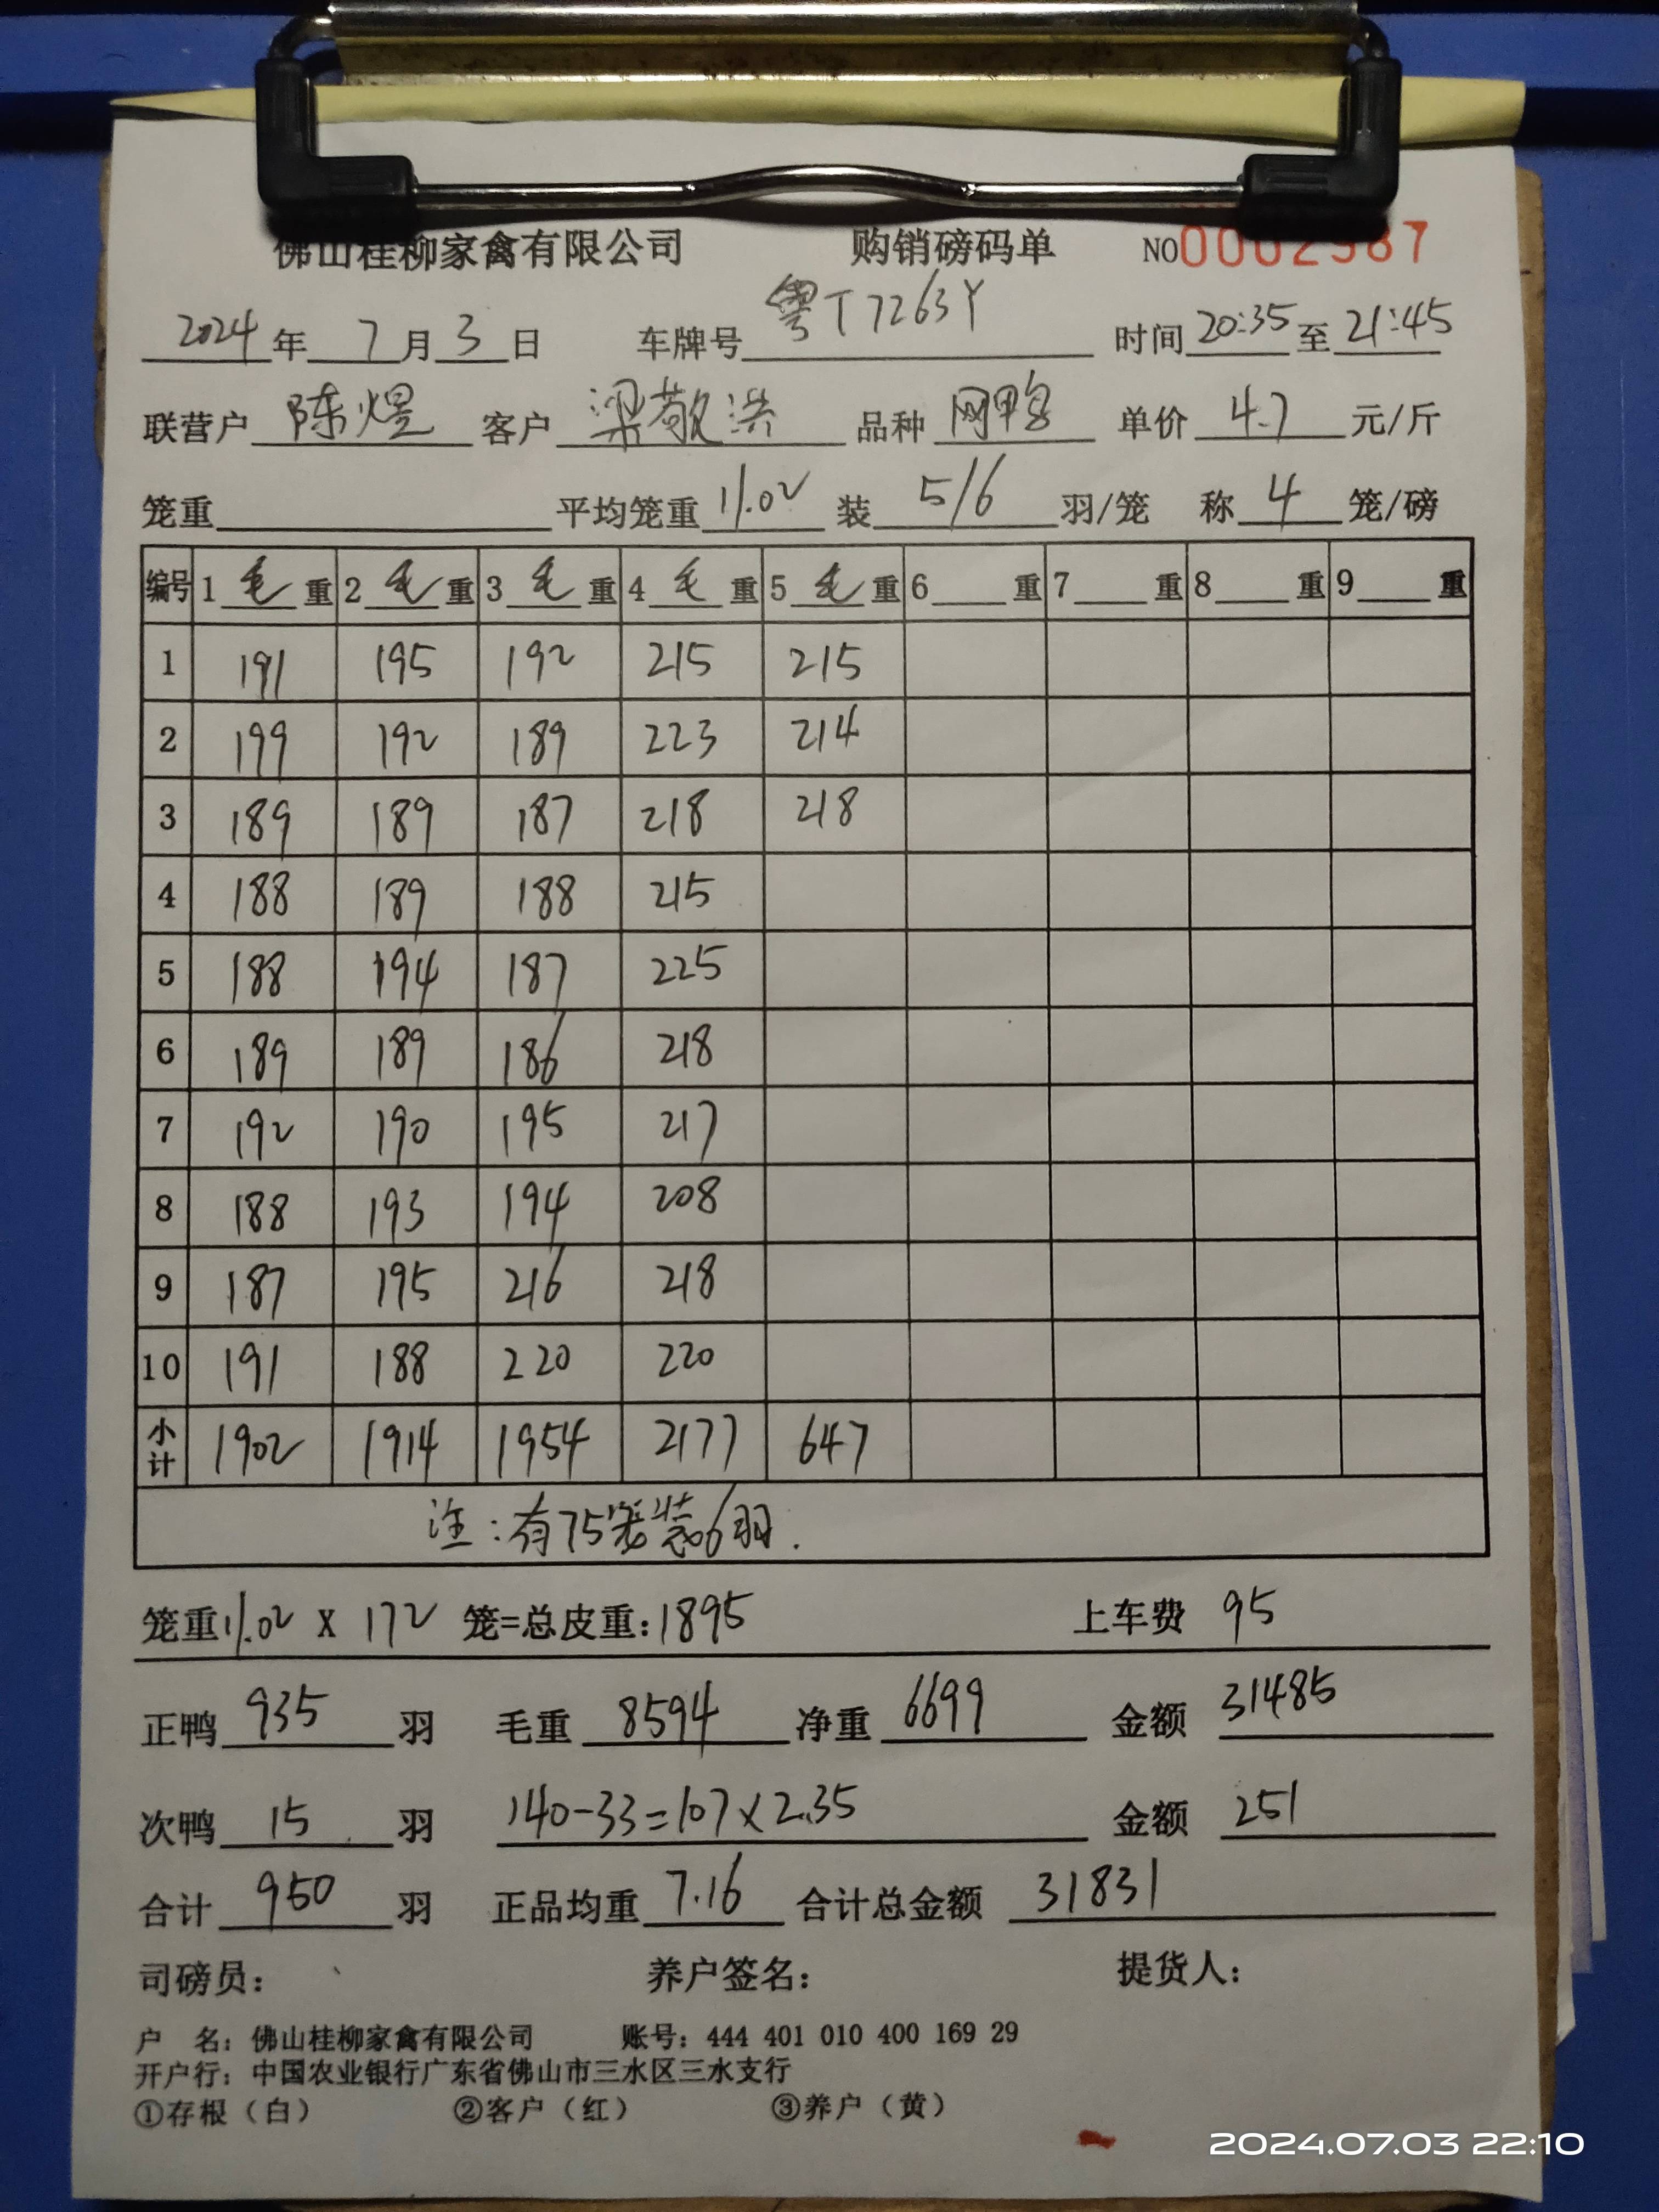 佛山桂柳家禽有限公司 购销磅码单 NO0002987
2024年7月3日 车牌号 粤T7263Y 时间20:35至21:45
联营户 陈煜 客户 梁敬洪 品种 网鸭 单价 4.7 元/斤
笼重 平均笼重 11.02 装 5/6 羽/笼 称 4 笼/磅
编号 1 毛 重 2 毛 重 3 毛 重 4 毛 重 5 毛 重 6 重 7 重 8 重 9 重
1 191 195 192 215 215
2 199 192 189 223 214
3 189 189 187 218 218
4 188 189 188 215
5 188 194 187 225
6 189 189 186 218
7 192 190 195 217
8 188 193 194 208
9 187 195 216 218
10 191 188 220 220
小计 1902 1914 1954 2177 647
注:有75笼装6羽.
笼重11.02 X 172 笼=总皮重:1895 上车费 95
正鸭 935 羽 毛重 8594 净重 6699 金额 31485
次鸭 15 羽 140-33=107×2.35 金额 251
合计 950 羽 正品均重 7.16 合计总金额 31831
司磅员: 养户签名: 提货人:
户 名: 佛山桂柳家禽有限公司 账号: 444 401 010 400 169 29
开户行: 中国农业银行广东省佛山市三水区三水支行
①存根(白) ②客户(红) ③养户(黄)
2024.07.03 22:10